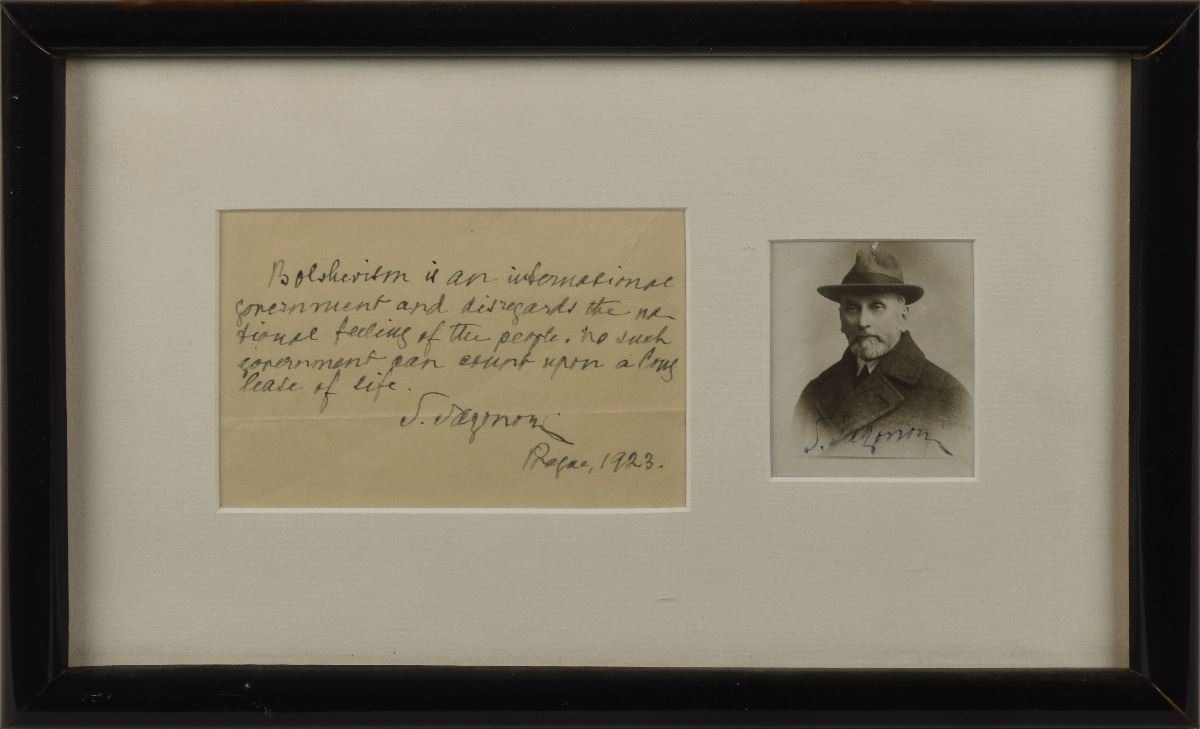 Bolshevism is an international
government and disregards the na-
tional feeling of the people. No such
government can count upon a long
lease of life.
S. Sazonow
Prague, 1923.
S. Sazonow